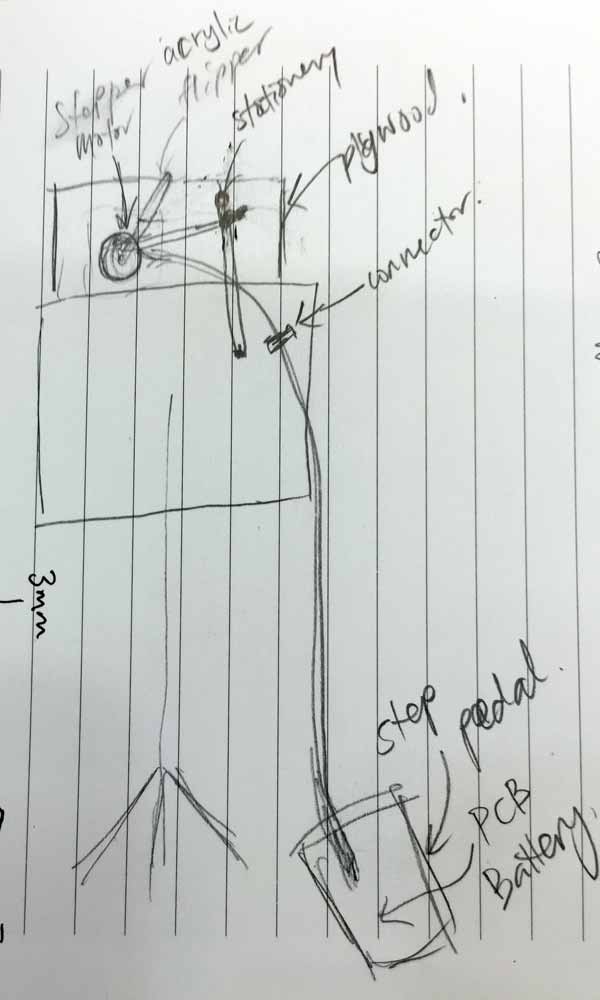 Stopper
motor
acrylic
flipper
stationery
plywood.
connector.
3mm
step
pedal.
PCB
Battery.